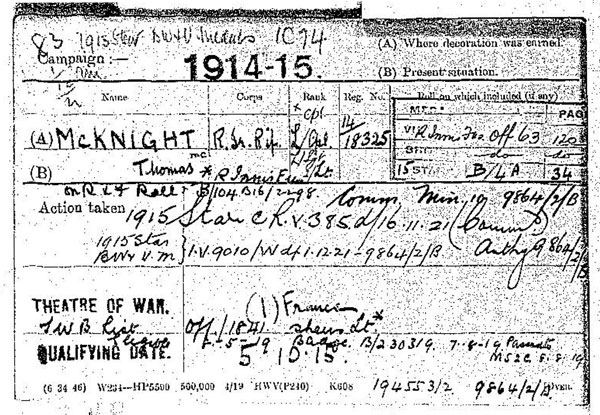 83 1915 Star BW&V Medals IC74
(A) Where decoration was earned.
Campaign :— 1914-15.
(B) Present situation.
Name Corps Rank Reg. No. Roll on which included (if any)
Cpl. PAGE
(A) McKNIGHT R. Ir. Rif. L/Cpl. 14/18325
V R Innis Fus Off 63 120
do do
(B) Thomas * R Innis Fus Lt
15 STAR B/4A 34
B/104 B16/2298 Comm. 9864/2/B
Action taken 1915 Star C R.V. 385 d/16.11.21
1915 Star
BW & V.M } I.V. 9010/W d/ 1.12.21 - 9864/2/B Authy 9864/2/B
THEATRE OF WAR. (1) France
Off/1841 shews Lt *
5-19 Badge B/2 30319. 7-8-19
QUALIFYING DATE. 5.10.15. 8.8.19
(6 34 46) W234—HP5500 500,000 4/19 HWV(P240) K608 194553/2 9864/2/B OVER.